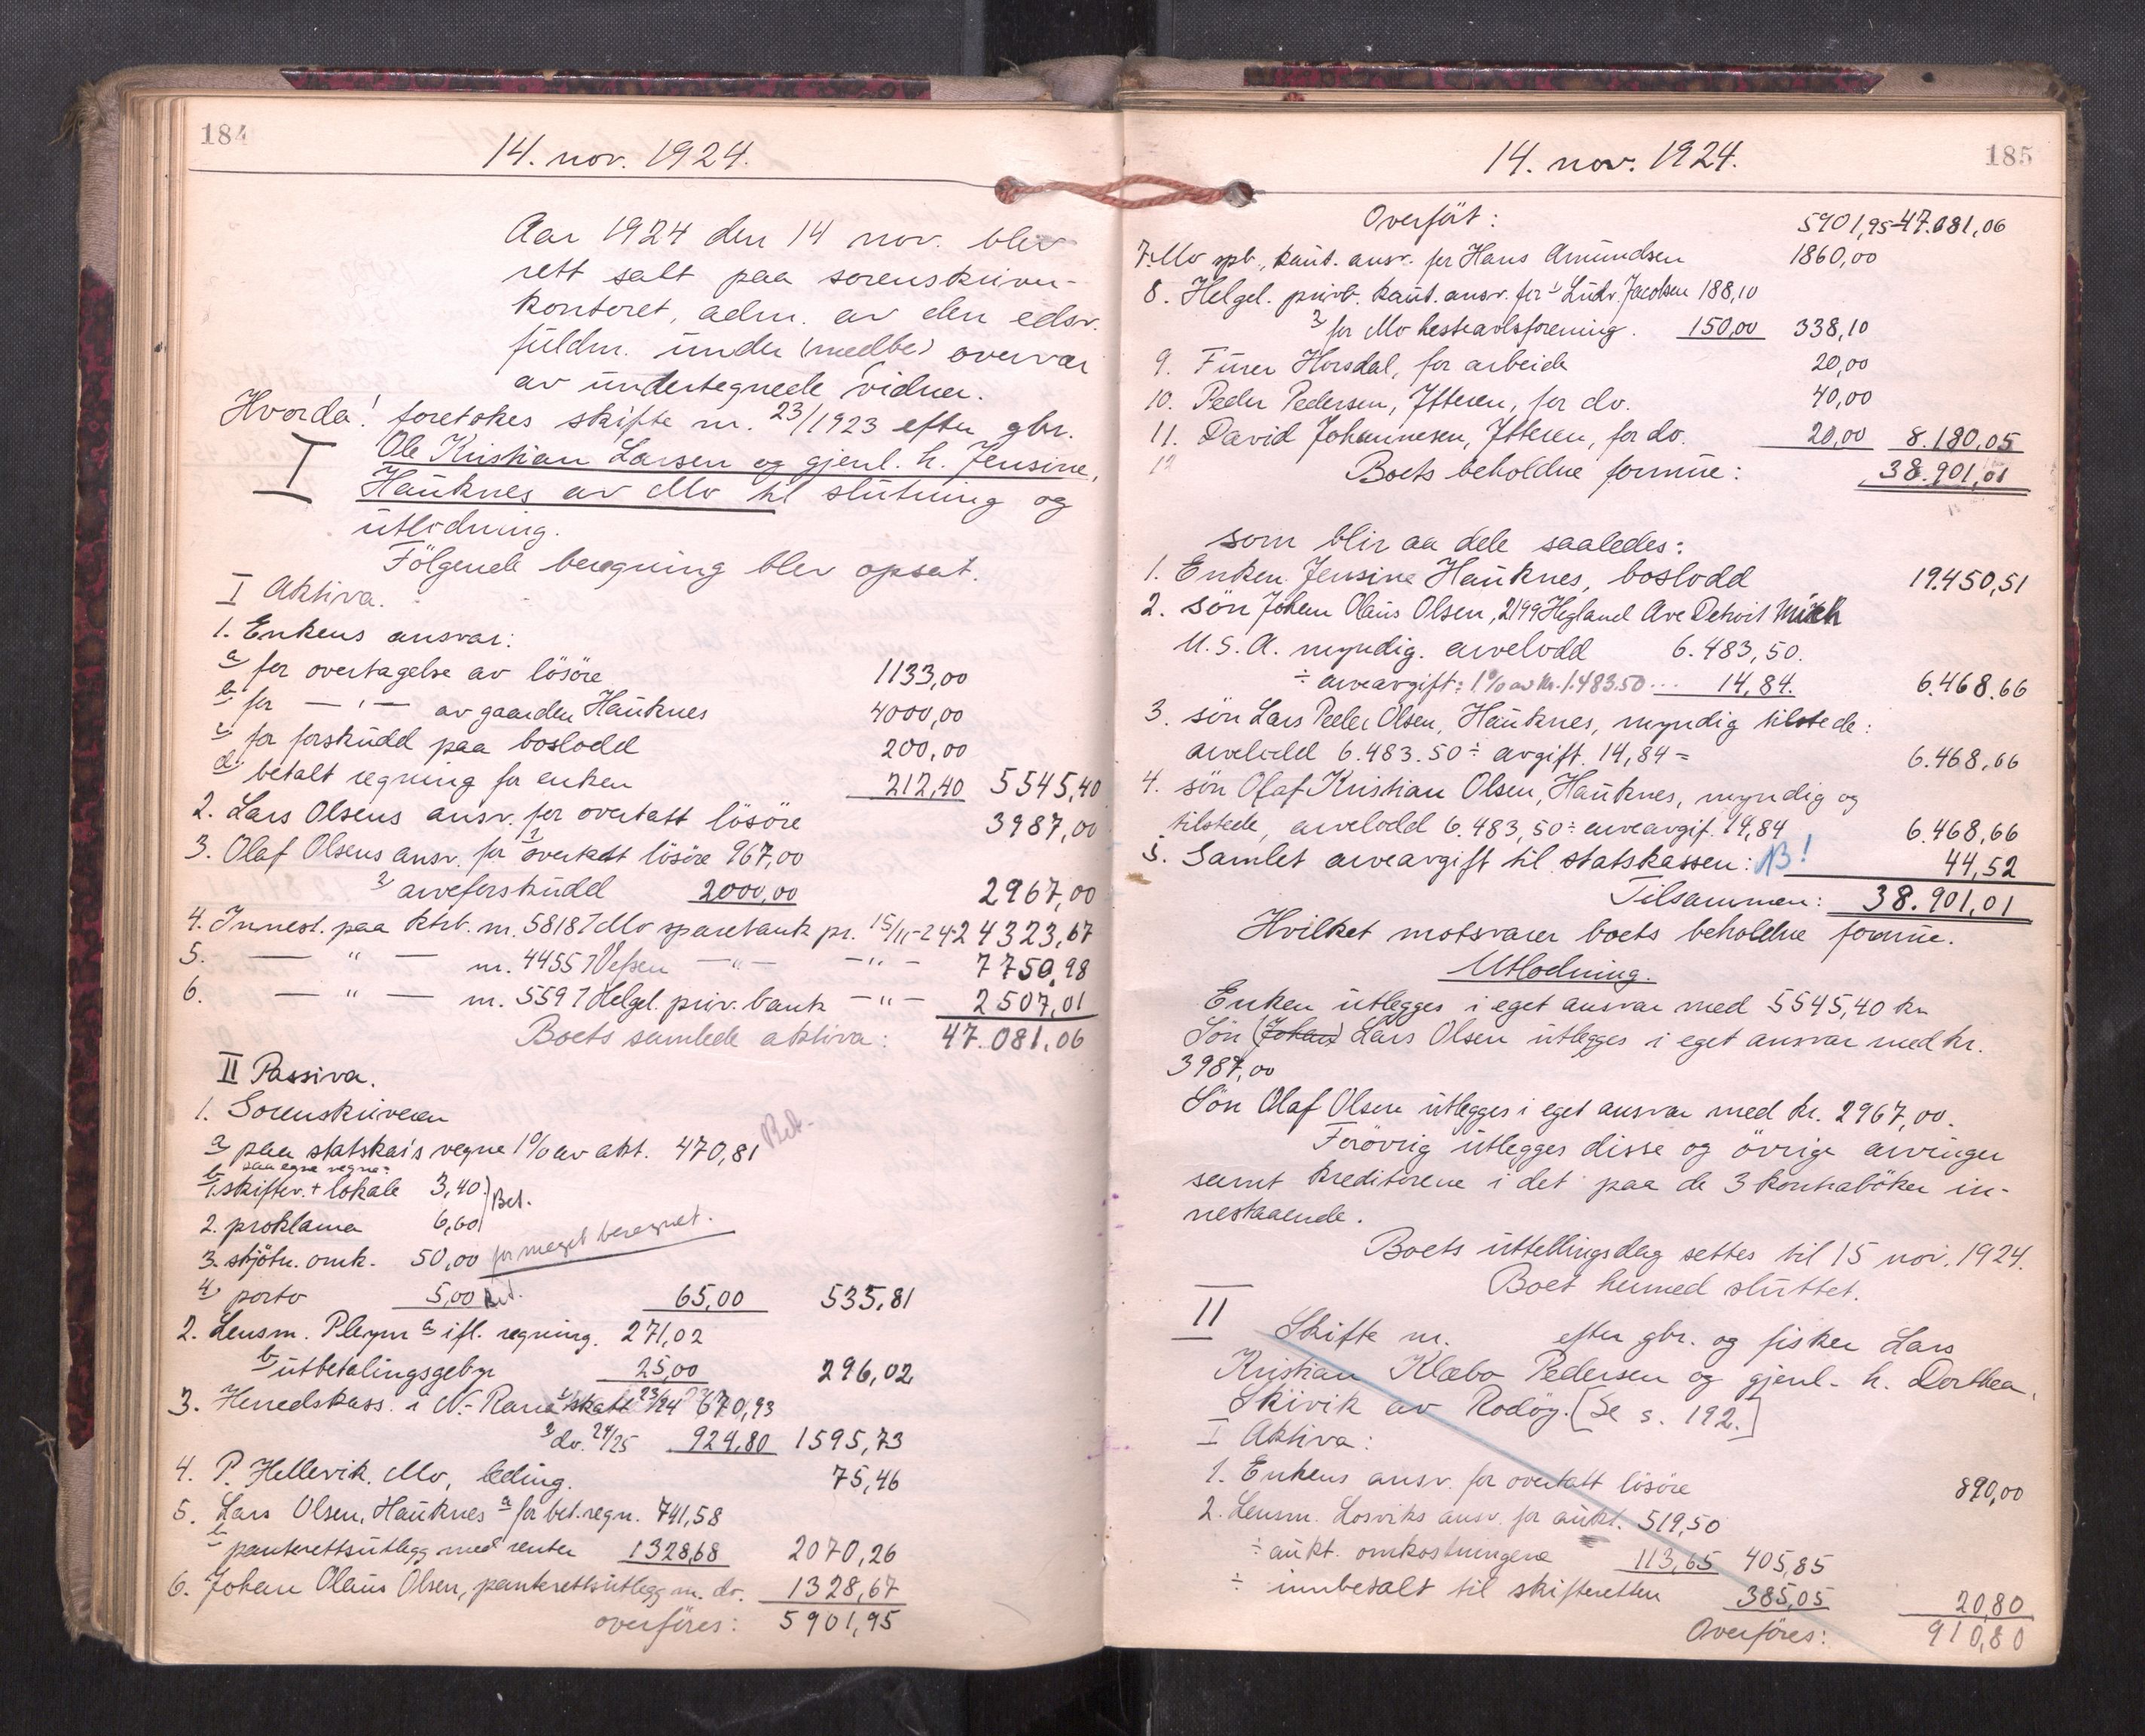 184
14. nov. 1924.
Aar 1924 den 14 nov. blev
rett satt paa sorenskriver-
kontoret, adm. av den edsv.
fuldm. under (medbe) overvær
av undertegnede vidner.
Hvorda! foretokes skifte nr. 23/1923 efter gbr.
I Ole Kristian Larsen og gjenl. h. Jensine,
Hauknes av Mo til slutning og
utlodning.
Følgende beregning blev opsat.
I Aktiva.
1. Enkens ansvar:
a for overtagelse av lösöre 1133,00
b for — " — av gaarden Hauknes 4000,00
c for forskudd paa boslodd 200,00
d betalt regning for enken 212,40 5545,40
2. Lars Olsens ansv. for overtatt lösöre 3987,00
3. Olaf Olsens ansv. for 1 overtatt lösöre 967,00
2 arveforskudd 2000,00 2967,00
4. Innest. paa ktrb. nr. 58187 Mo sparebank pr. 15/11-24 24323,67
5. — " — nr. 44557 Vefsen — " — — " — 7750,98
6. — " — nr. 5597 Helgel. priv. bank — " — 2507,01
Boets samlede aktiva: 47.081,06
II Passiva.
1. Sorenskriveren
a paa statskas's vegne 1% av akt. 470,81 Bet.
b paa egne vegne:
1. skiftev. + lokale 3,40 Bet.
2. proklama 6,60
3. skjötn. omk. 50,00 for meget beregnet.
4 porto 5,00 Bet. 65,00 535,81
2. Lensm. Pleym a ifl. regning. 271,02
b utbetalingsgebyr 25,00 296,02
3. Herredskass. i N.-Rana 1 skatt 23/24 670,93
2 do. 24/25 924,80 1595,73
4. P. Hellevik, Mo, leding. 75,46
5. Lars Olsen, Hauknes a for bet. regn. 741,58
b panterettsutlegg med renter 1328,68 2070,26
6. Johan Olaus Olsen, panterettsutlegg m. do. 1328,67
overföres: 5901,95
14. nov. 1924.
185
Overfört: 5901,95 47.081,06
7. Mo spb., kaut. ansv. for Hans Amundsen 1860,00
8. Helgel. privb. kaut. ansv. for 1 Ludv. Jacobsen 188,10
2 for Mo hesteavlsforening. 150,00 338,10
9. Furer Horsdal, for arbeide 20,00
10. Peder Pedersen, Ytteren, for do. 40,00
11. David Johannesen, Ytteren, for do. 20,00 8.180,05
12 Boets beholdne formue: 38.901,01
som blir aa dele saaledes:
1. Enken Jensine Hauknes, boslodd 19.450,51
2. sön Johan Olaus Olsen, 2199 Hegland Ave Detroit Mich
U.S.A. myndig. arvelodd 6.483,50.
÷ arveavgift: 1% av kr. 1.483.50... 14,84. 6.468.66
3. sön Lars Peder Olsen, Hauknes, myndig tilstede:
arvelodd 6.483.50 ÷ avgift. 14,84 = 6.468,66
4. sön Olaf Kristian Olsen, Hauknes, myndig og
tilstede, arvelodd 6.483,50 ÷ arveavgif. 14,84 6.468,66
5. Samlet arveavgift til statskassen: NB! 44,52
Tilsammen: 38.901,01
Hvilket motsvarer boets beholdne formue.
Utlodning.
Enken utlegges i eget ansvar med 5545,40 kr
Sön (Johan) Lars Olsen utlegges i eget ansvar med kr.
3987,00
Sön Olaf Olsen utlegges i eget ansvar med kr. 2967,00.
Forövrig utlegges disse og övrige arvinger
samt kreditorene i det paa de 3 kontraböker in-
nestaaende.
Boets uttellingsdag settes til 15 nov. 1924.
Boet hermed sluttet.
II
Skifte nr. efter gbr. og fisker Lars
Kristian Klæbo Pedersen og gjenl. h. Dorthea,
Skivik av Rodöy. [Se s. 192.]
I Aktiva:
1. Enkens ansv. for overtatt lösöre 890,00
2. Lensm. Losviks ansv. for aukt. 519,50
÷ aukt. omkostningene 113,65 405,85
÷ innbetalt til skifteretten 385,05 20,80
Overföres: 910,80